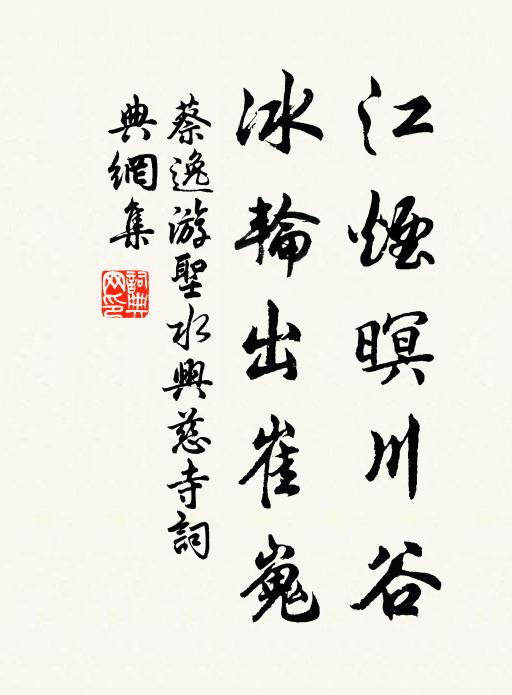 江煙暝川谷
冰輪出崔嵬
蔡逸游聖水興慈寺詞
典網集
詞典網印